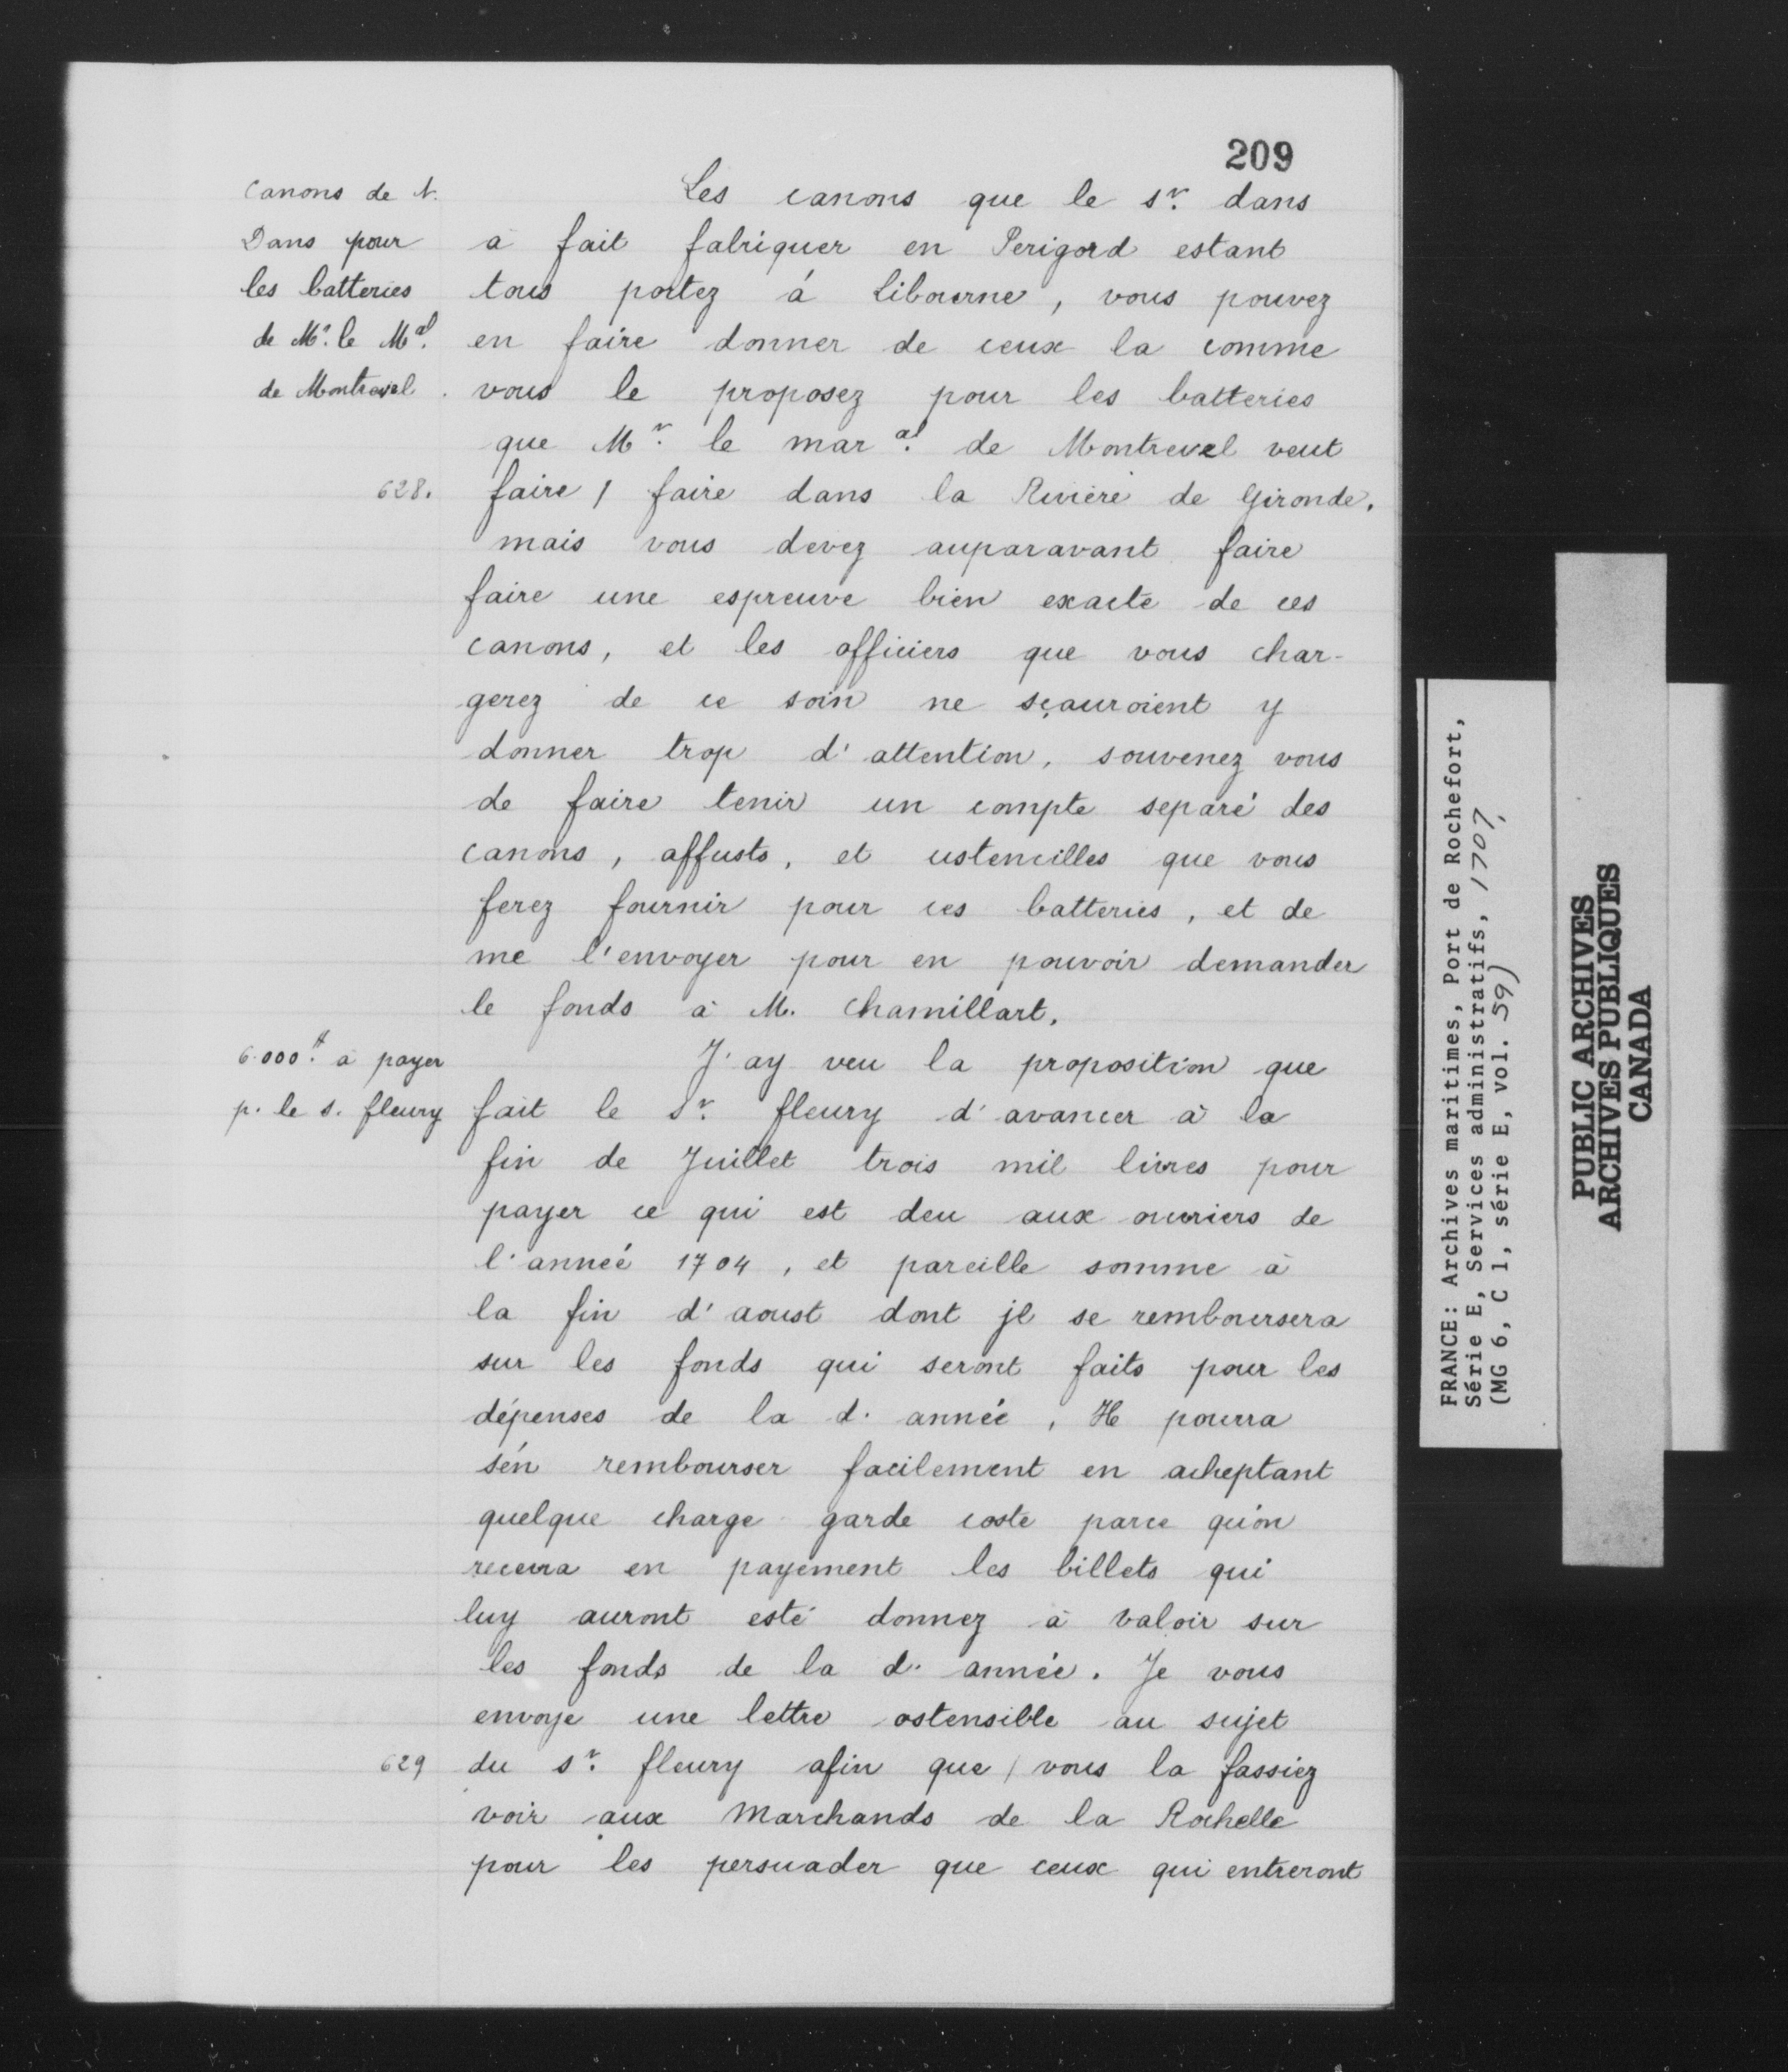 209
Canons de N.
Dans pour
les batteries
de Mr. le Mal.
de Montrevel.
Les canons que le sr. dans
a fait fabriquer en Perigord estant
tous portez á Libourne, vous pouvez
en faire donner de ceux la comme
vous le proposez pour les batteries
que Mr. le maral. de Montrevel veut
628. faire / faire dans la Riviere de Gironde.
mais vous devez auparavant faire
faire une espreuve bien exacte de ces
canons, et les officiers que vous char-
gerez de ce soin ne sçauroient y
donner trop d'attention, souvenez vous
de faire tenir un compte separé des
canons, affusts, et ustencilles que vous
ferez fournir pour ces batteries, et de
me l'envoyer pour en pouvoir demander
le fonds à M. Chamillart.
6.000.# a payer
p. le s. fleury
J'ay veu la proposition que
fait le Sr. fleury d'avancer à la
fin de Juillet trois mil livres pour
payer ce qui est deu aux ouvriers de
l'anneé 1704, et pareille somme à
la fin d'aoust dont jl se remboursera
sur les fonds qui seront faits pour les
dépenses de la d. année, Il pourra
s'én rembourser facilement en acheptant
quelque charge garde coste parce qu'on
recevra en payement les billets qui
luy auront esté donnez à valoir sur
les fonds de la d. année. Je vous
envoye une lettre ostensible au sujet
629 du sr. fleury afin que / vous la fassiez
voir aux Marchands de la Rochelle
pour les persuader que ceux qui entreront
FRANCE: Archives maritimes, Port de Rochefort,
Série E, Services administratifs, 1707,
(MG 6, C 1, série E, vol. 59)
PUBLIC ARCHIVES
ARCHIVES PUBLIQUES
CANADA